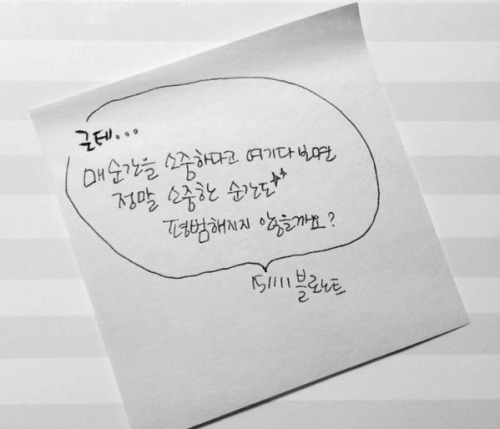 근데...
매 순간을 소중하다고 여기다 보면
정말 소중한 순간도☆☆
평범해지지 않을까요?
151111 블로노트